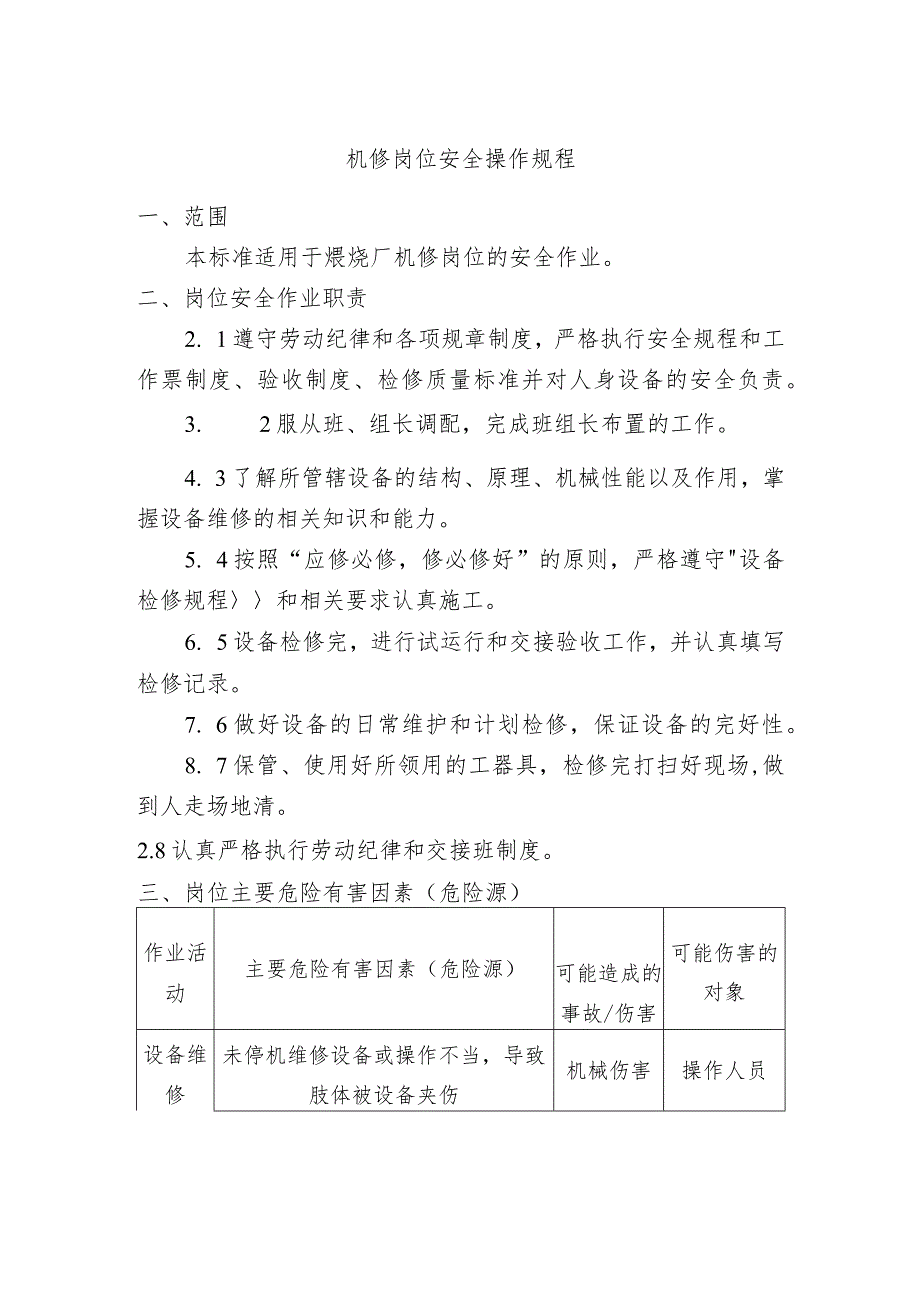 机修岗位安全操作规程
一、范围
本标准适用于煨烧厂机修岗位的安全作业。
二、岗位安全作业职责
2. 1遵守劳动纪律和各项规章制度，严格执行安全规程和工
作票制度、验收制度、检修质量标准并对人身设备的安全负责。
3. 2服从班、组长调配，完成班组长布置的工作。
4. 3了解所管辖设备的结构、原理、机械性能以及作用，掌
握设备维修的相关知识和能力。
5. 4按照“应修必修，修必修好”的原则，严格遵守"设备
检修规程〉〉和相关要求认真施工。
6. 5设备检修完，进行试运行和交接验收工作，并认真填写
检修记录。
7. 6做好设备的日常维护和计划检修，保证设备的完好性。
8. 7保管、使用好所领用的工器具，检修完打扫好现场,做
到人走场地清。
2.8认真严格执行劳动纪律和交接班制度。
三、岗位主要危险有害因素（危险源）
作业活
动
主要危险有害因素（危险源）
可能造成的
事故/伤害
可能伤害的
对象
设备维
修
未停机维修设备或操作不当，导致
肢体被设备夹伤
机械伤害
操作人员